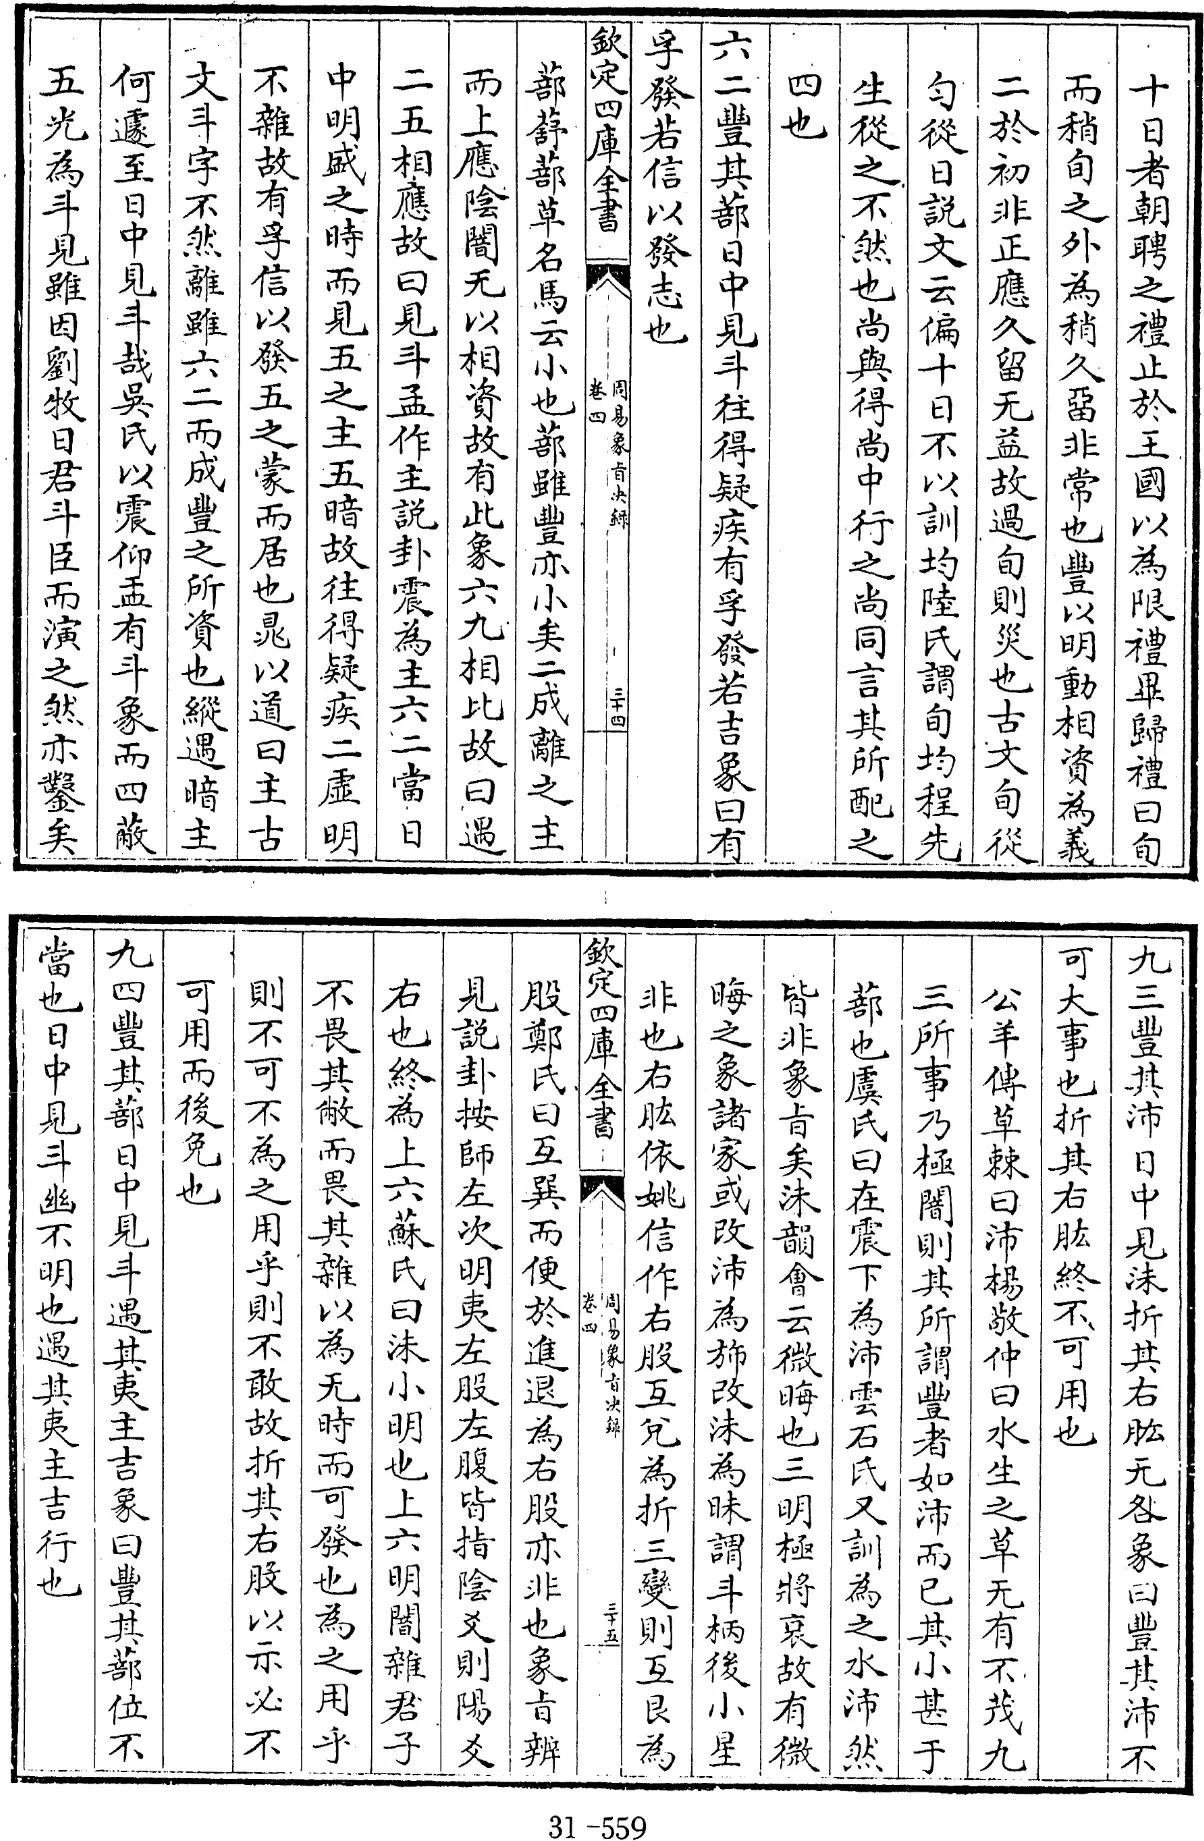 十日者朝聘之禮止於王國以為限禮畢歸禮曰旬
而稍旬之外為稍久留非常也豐以明動相資為義
二於初非正應久留无益故過旬則災也古文旬從
勻從日説文云偏十日不以訓均陸氏謂旬均程先
生從之不然也尚與得尚中行之尚同言其所配之
四也
六二豐其蔀日中見斗往得疑疾有孚發若吉象曰有
孚發若信以發志也
欽定四庫全書
周易象旨决錄
卷四
三十四
蔀蔀草名馬云小也蔀雖豐亦小矣二成離之主
而上應陰闇无以相資故有此象六九相比故曰遇
二五相應故曰見斗孟作主説卦震為主六二當日
中明盛之時而見五之主五暗故往得疑疾二虛明
不雜故有孚信以發五之蒙而居也晁以道曰主古
文斗字不然離雖六二而成豐之所資也縱遇暗主
何遽至日中見斗哉吳氏以震仰盂有斗象而四蔽
五光為斗見雖因劉牧日君斗臣而演之然亦鑿矣
九三豐其沛日中見沬折其右肱无咎象曰豐其沛不
可大事也折其右肱終不可用也
公羊傳草棘曰沛楊敬仲曰水生之草无有不茂九
三所事乃極闇則其所謂豐者如沛而已其小甚于
蔀也虞氏曰在震下為沛雲石氏又訓為之水沛然
皆非象旨矣沬韻會云微晦也三明極將衰故有微
晦之象諸家或改沛為旆改沬為昧謂斗柄後小星
非也右肱依姚信作右股互兌為折三變則互艮為
欽定四庫全書
周易象旨决錄
卷四
三十五
股鄭氏曰互巽而便於進退為右股亦非也象旨辨
見説卦按師左次明夷左股左腹皆指陰爻則陽爻
右也終為上六蘇氏曰沬小明也上六明闇雜君子
不畏其敝而畏其雜以為无時而可發也為之用乎
則不可不為之用乎則不敢故折其右股以示必不
可用而後免也
九四豐其蔀日中見斗遇其夷主吉象曰豐其蔀位不
當也日中見斗幽不明也遇其夷主吉行也
31-559